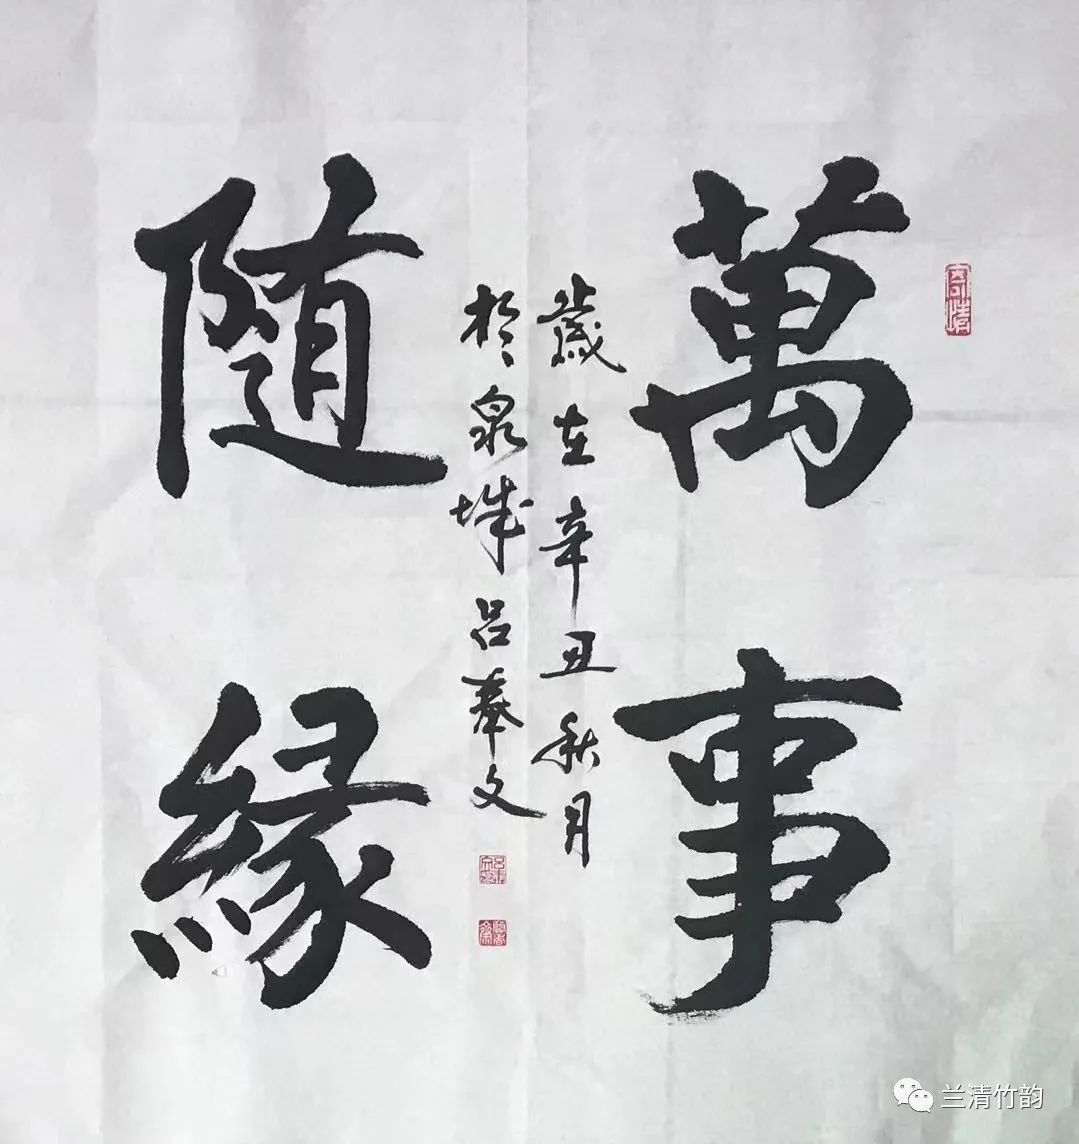 萬事
随緣
歲在辛丑秋月
於泉城吕奉文
寄情
兰清竹韵